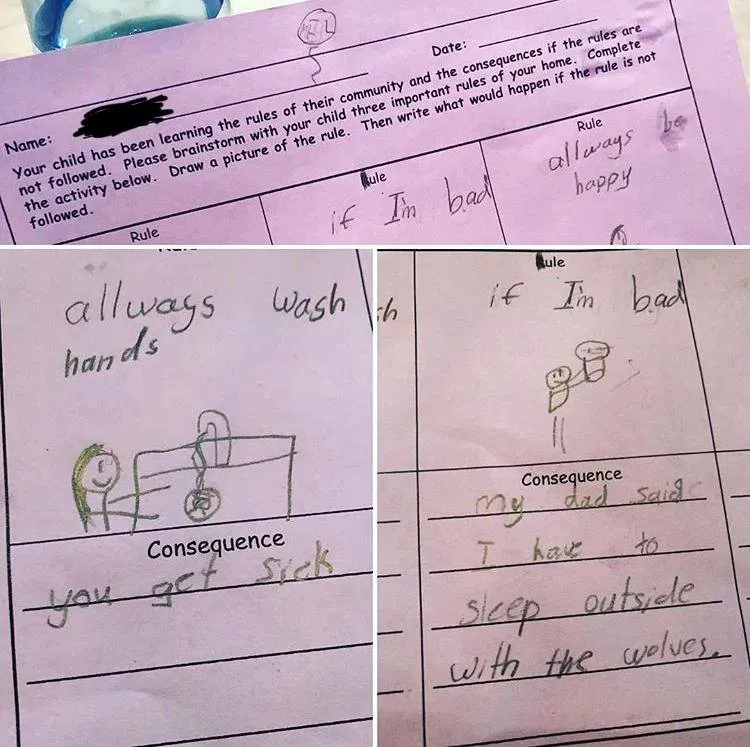 Date:
Name:
Your child has been learning the rules of their community and the consequences if the rules are
not followed. Please brainstorm with your child three important rules of your home. Complete
the activity below. Draw a picture of the rule. Then write what would happen if the rule is not
followed.
Rule
Rule
if I'm bad
Rule
allways be
happy
allways wash
hands
Consequence
you get sick
Rule
if I'm bad
Consequence
my dad said
I have to
sleep outside
with the wolves.